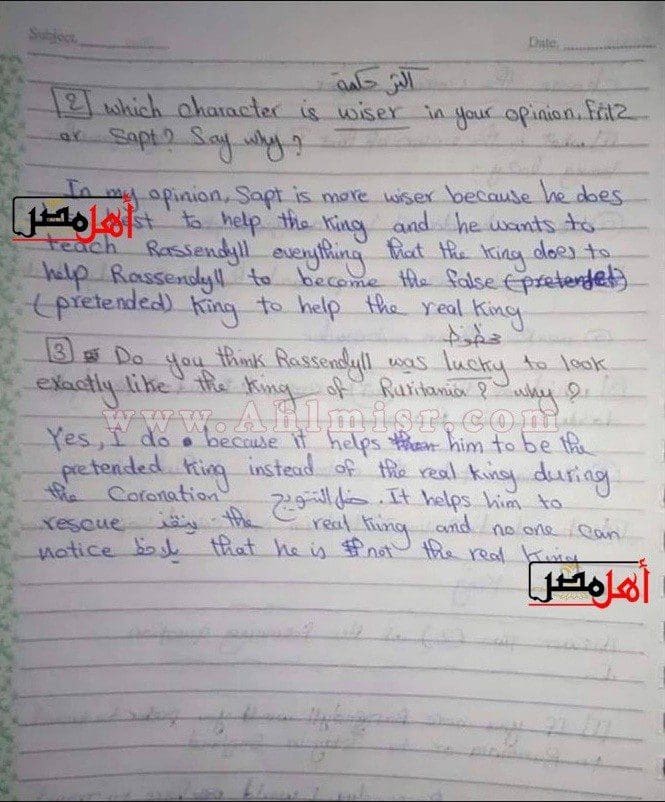 Subject
Date:
أكثر حكمة
[2] which character is wiser in your opinion, Fritz
or Sapt? Say why?
In my opinion, Sapt is more wiser because he does
أهل مصر
st to help the King and he wants to
teach Rassendyll everything that the King does to
help Rassendyll to become the false (pretended)
(pretended) King to help the real King
محظوظ
[3] Do you think Rassendyll was lucky to look
exactly like the King of Ruritania? why?
www.Ahlmisr.com
Yes, I do because it helps him to be the
pretended King instead of the real King during
the Coronation حفل التتويج. It helps him to
rescue ينقذ the real King and no one can
notice يلاحظ that he is not the real King
أهل مصر